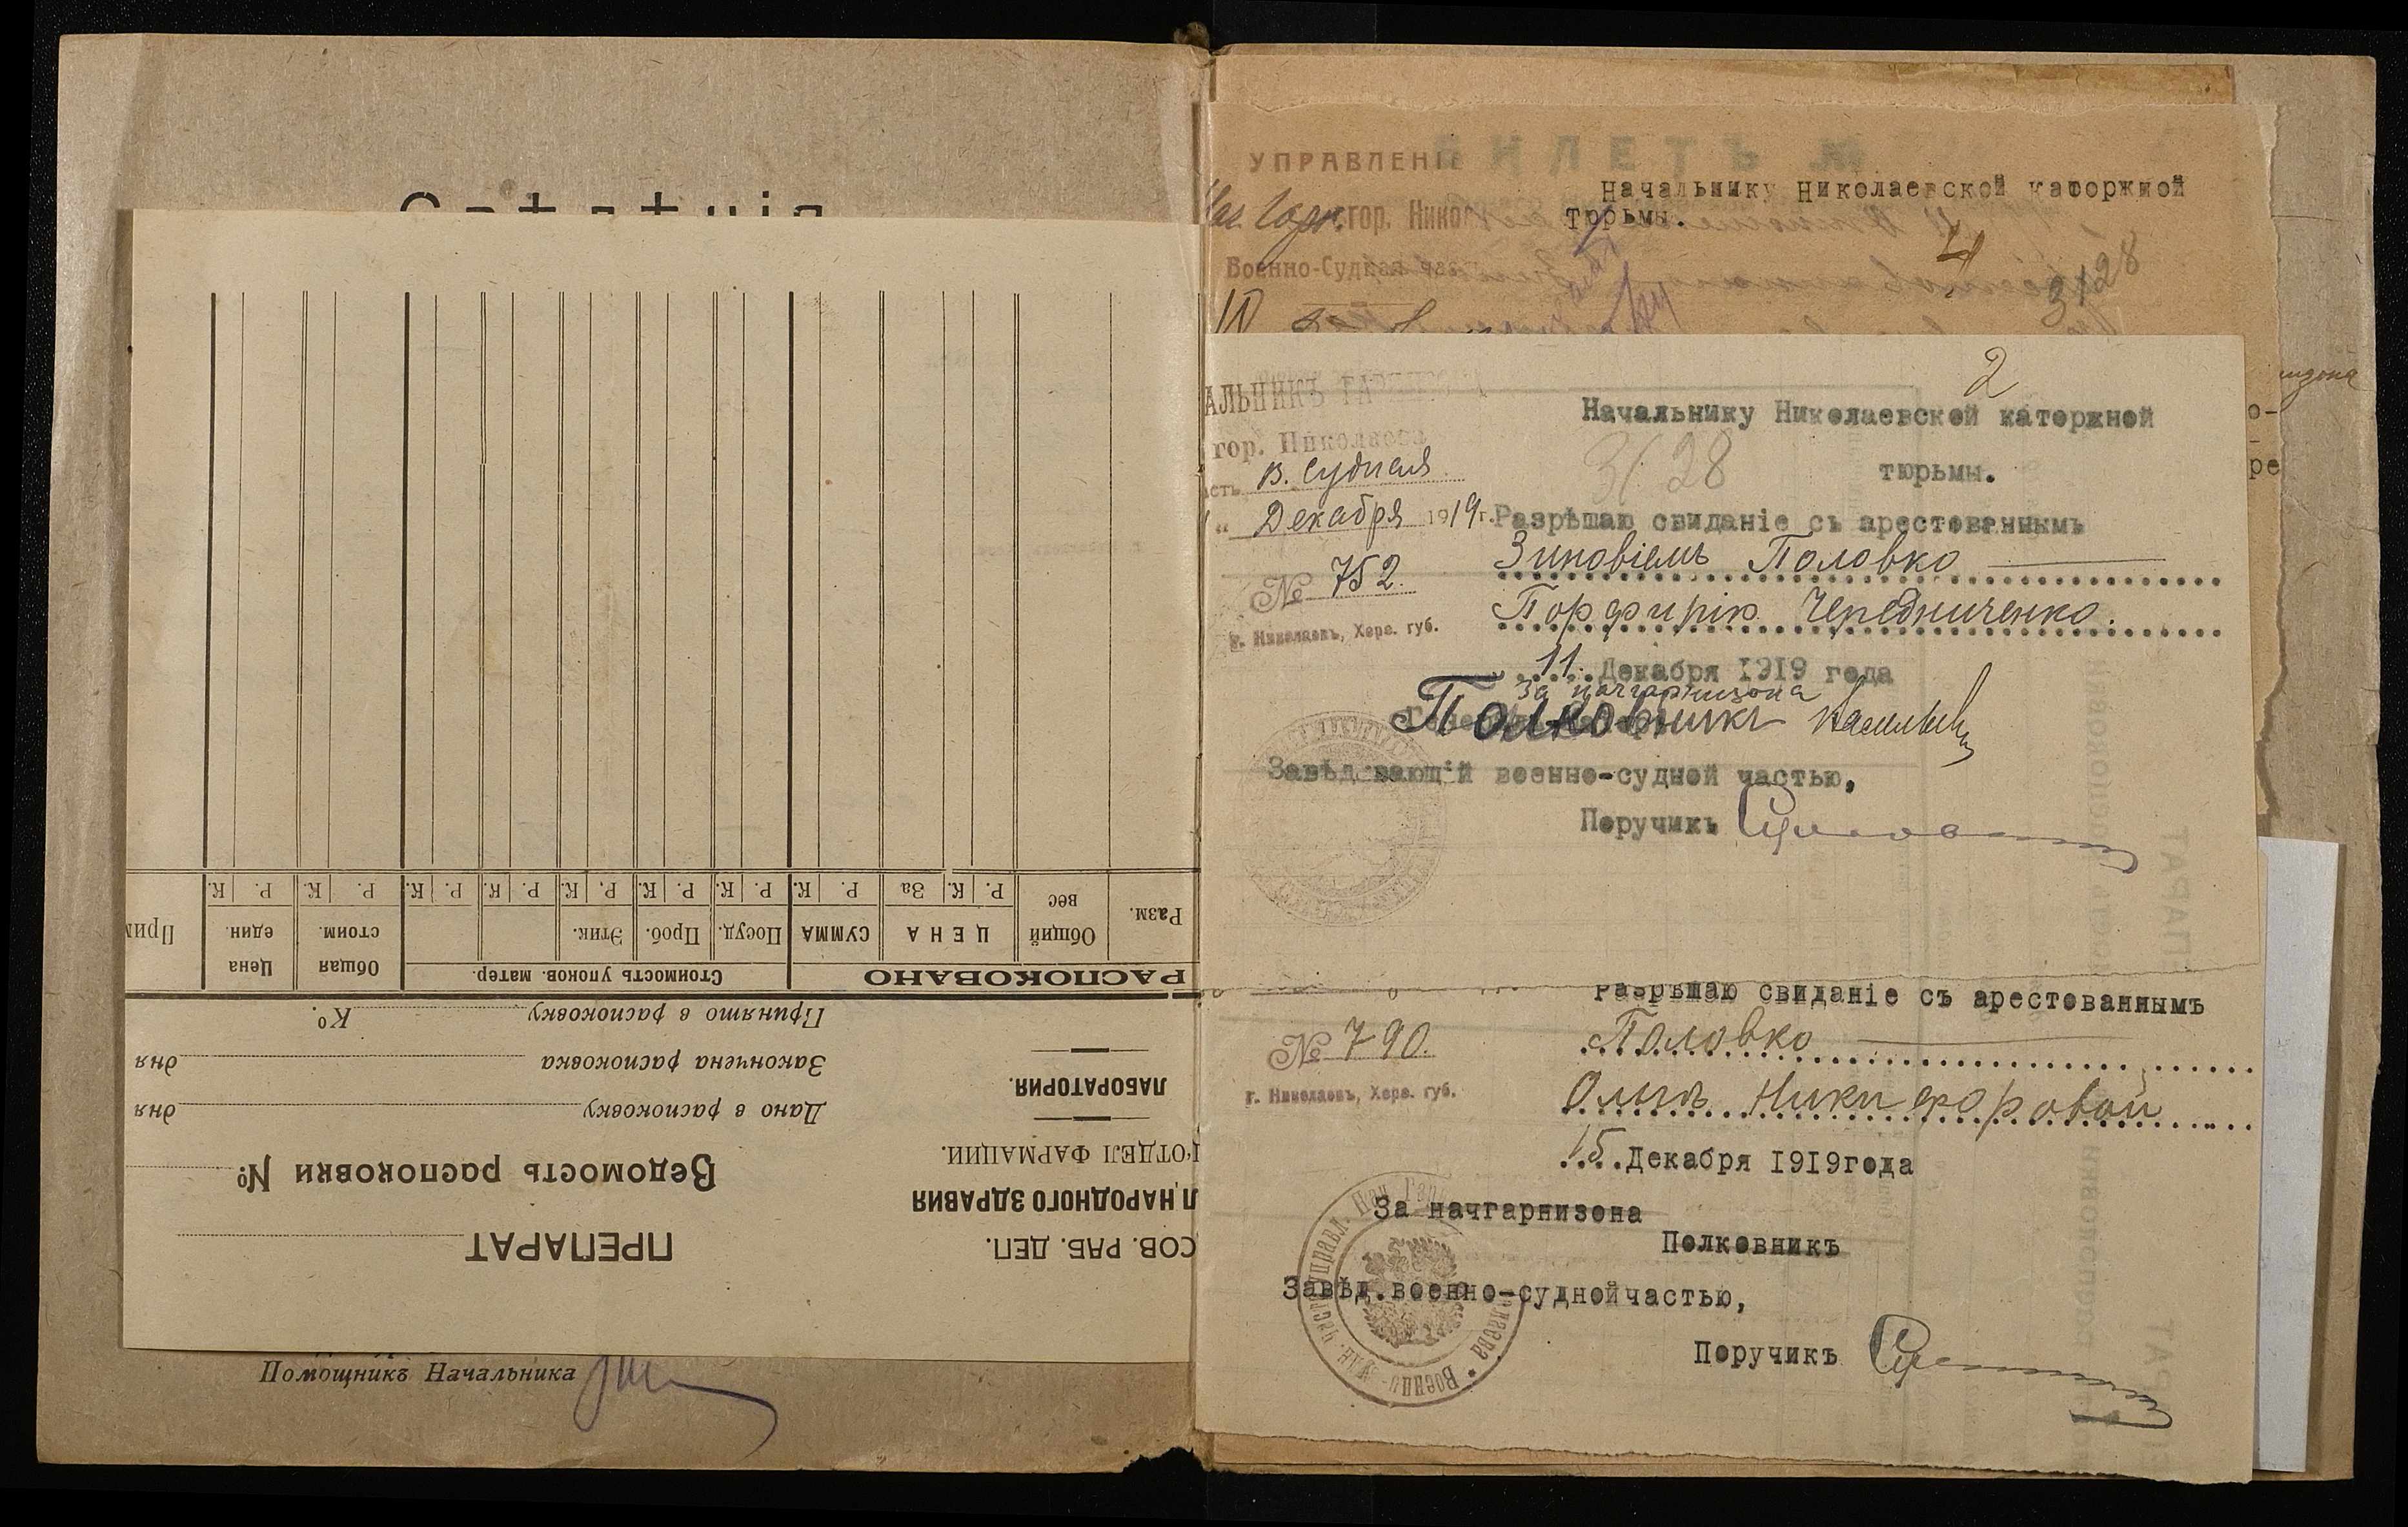 Помощникъ Начальника
СОВ. РАБ. ДЕП.
НАРОДНОГО ЗДРАВИЯ
ОТДЕЛ ФАРМАЦИИ.
ЛАБОРАТОРИЯ.
ПРЕПАРАТ
Ведомость распоковки №
Дано в распоковку дня
Закончена распоковка дня
Принято в распоковку К⁰.
РАСПОКОВАНО Стоимость упоков. матер.
Разм. Общий вес ЦЕНА СУММА Посуд. Проб. Этик. Общая стоим. Цена един. Прим
Р. К. За Р. К. Р. К. Р. К. Р. К. Р. К. Р. К. Р. К. Р. К.
УПРАВЛЕНІЕ
БИЛЕТЪ №
Начальнику Николаевской каторжной
тюрьмы.
гор. Никол
Военно-Судная час
3128
2
АЛЬНИКЪ ГАРНИЗО
гор. Николаева
В. Судная
Декабря 1919 г.
№ 752.
г. Николаевъ, Херс. губ.
Начальнику Николаевской каторжной
3128
тюрьмы.
Разрѣшаю свиданіе съ арестованнымъ
Зиновіемъ Половко
Порфирію Чередниченко.
11 Декабря 1919 года
За начгарнизона
Полковникъ
Завѣдывающій военно-судной частью,
Поручикъ
Разрѣшаю свиданіе съ арестованнымъ
№ 790.
г. Николаевъ, Херс. губ.
Половко
Ольгѣ Никифоровой
15 Декабря 1919года
За начгарнизона
Полковникъ
Завѣд.военно-суднойчастью,
Поручикъ